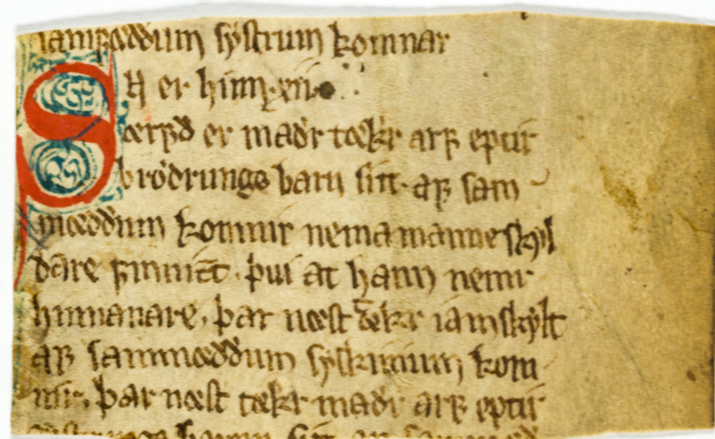 samꝼæddum systrum komnar
SA er hinn xii
ærꝼd er madr tækr arꝼ eptir
brödrungs barn sitt aꝼ sam
mæddum komnir nema manne skyl
dare ꝼinnizt. þui at hann nemr
hinnanare. þar næst tekr iamskyllt
aꝼ sammæddum systkinum kom
nir. þar næst tækr madr arꝼ eptir